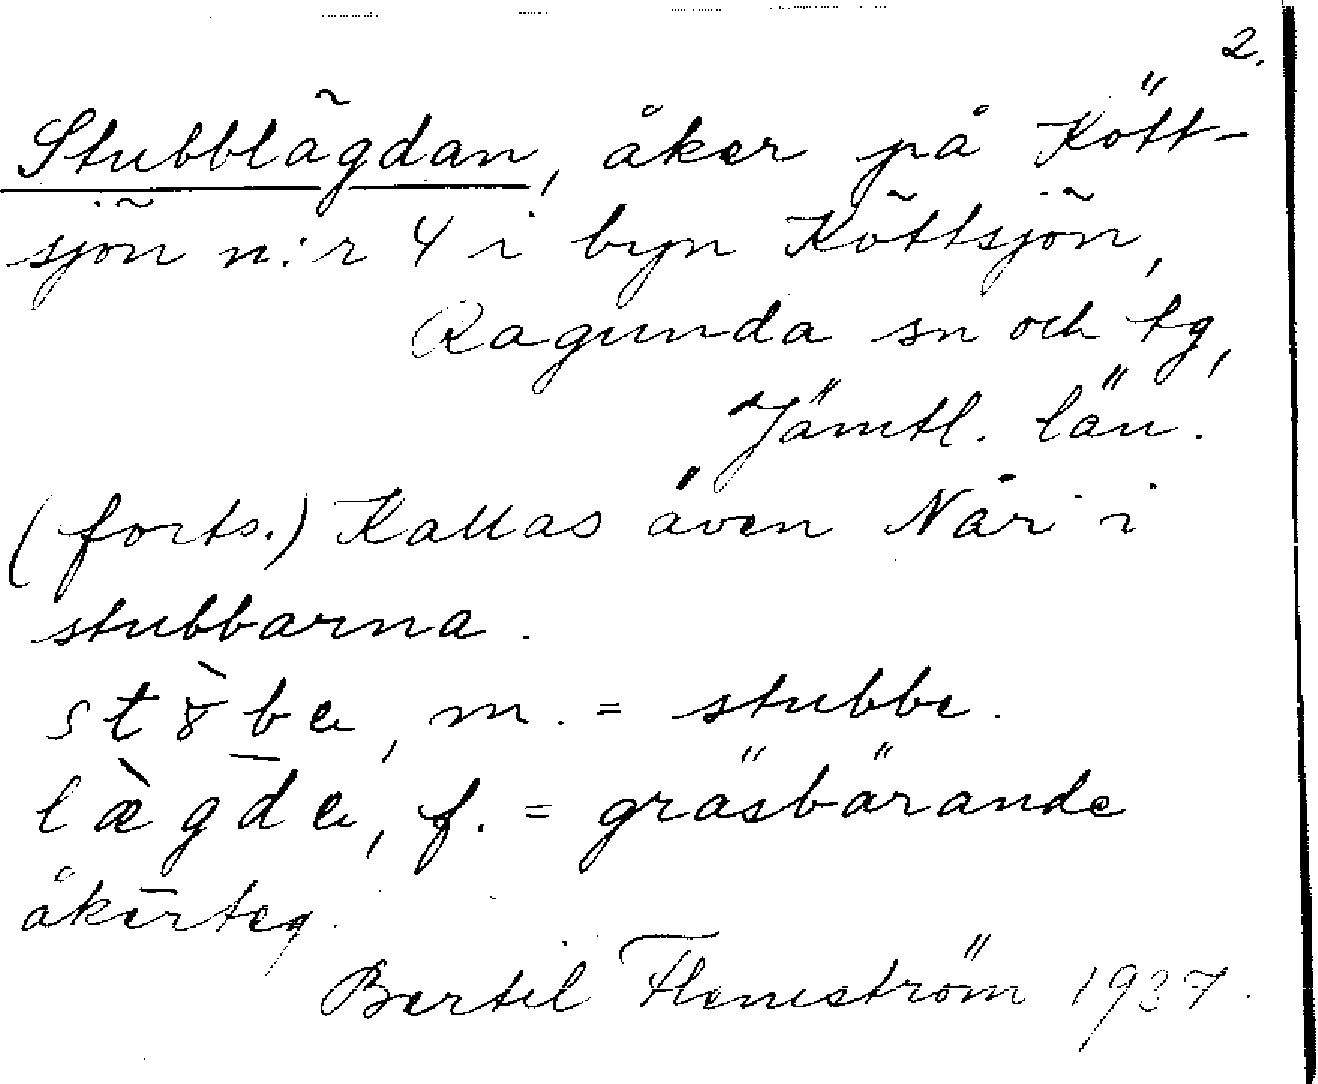 2.
Stubblägdan, åker på Kött-
sjön n:r 4 i byn Köttsjön,
Ragunda sn och tg,
Jämtl. län.
(forts.) Kallas även När i
stubbarna.
m. = stubbe.
f. = gräsbärande
åkerteg.
Bertil Flemström 1937.